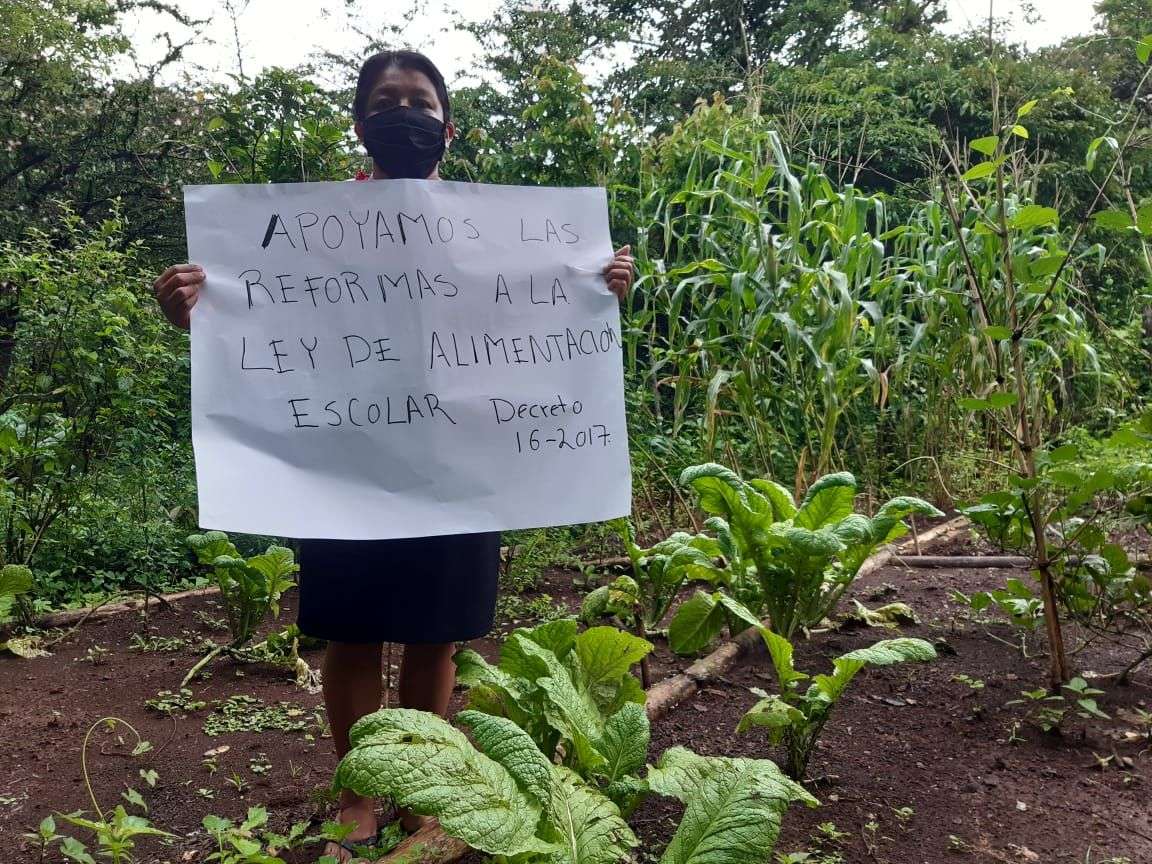 APOYAMOS LAS
REFORMAS A LA
LEY DE ALIMENTACIÓN
ESCOLAR Decreto
16-2017.